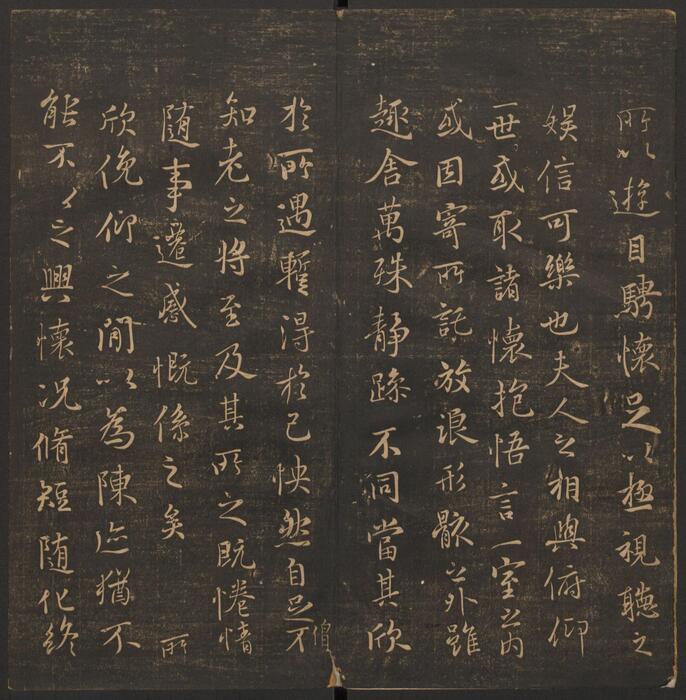 所以遊目騁懷足以極視聽之
娛信可樂也夫人之相與俯仰
一世或取諸懷抱悟言一室之內
或因寄所託放浪形骸之外雖
趣舍萬殊靜躁不同當其欣
僧
於所遇暫得於己怏然自足不
知老之將至及其所之既惓情
隨事遷感慨係之矣　所
欣俛仰之間以為陳迹猶不
能不以之興懷況脩短隨化終